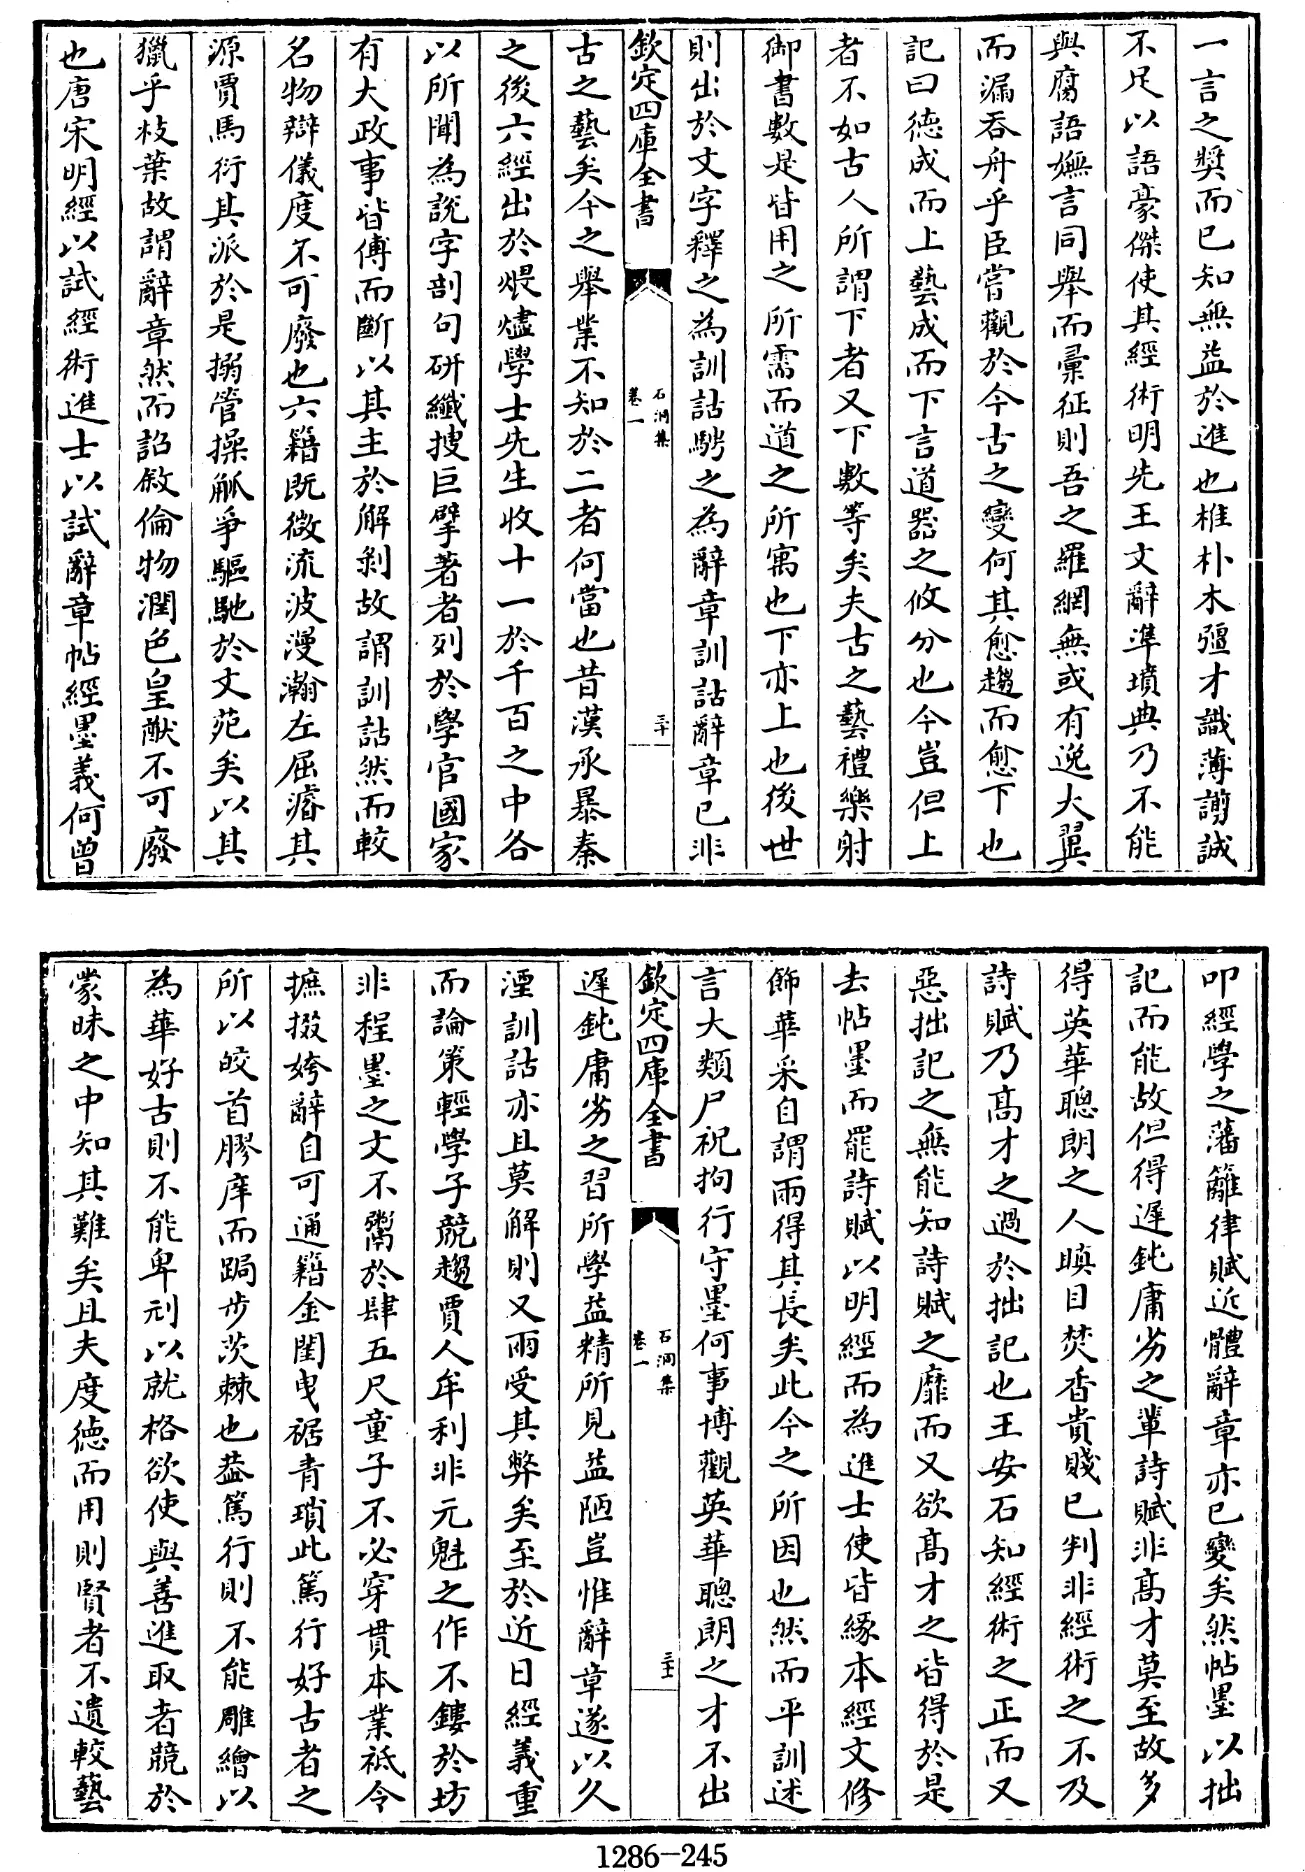 一言之獎而已知無益於進也椎朴木彊才識薄謭誠
不足以語豪傑使其經術明先王文辭準墳典乃不能
與腐語嫵言同舉而彚征則吾之羅網無或有逸大翼
而漏吞舟乎臣嘗觀於今古之變何其愈趨而愈下也
記曰徳成而上藝成而下言道器之攸分也今豈但上
者不如古人所謂下者又下數等矣夫古之藝禮樂射
御書數是皆用之所需而道之所寓也下亦上也後世
則出於文字釋之為訓詁騁之為辭章訓詁辭章已非
欽定四庫全書
石洞集
卷一
三十
古之藝矣今之舉業不知於二者何當也昔漢承暴秦
之後六經出於煨燼學士先生收十一於千百之中各
以所聞為說字剖句研纖搜巨擘著者列於學官國家
有大政事皆傅而斷以其主於解剝故謂訓詁然而較
名物辯儀度不可廢也六籍既微流波漫瀚左屈濬其
源賈馬衍其派於是搦管操觚爭驅馳於文苑矣以其
獵乎枝葉故謂辭章然而詔敘倫物潤色皇猷不可廢
也唐宋明經以試經術進士以試辭章帖經墨義何曾
叩經學之藩籬律賦近體辭章亦已變矣然帖墨以拙
記而能故但得遲鈍庸劣之輩詩賦非髙才莫至故多
得英華聰朗之人瞋目焚香貴賤已判非經術之不及
詩賦乃髙才之過於拙記也王安石知經術之正而又
惡拙記之無能知詩賦之靡而又欲髙才之皆得於是
去帖墨而罷詩賦以明經而為進士使皆緣本經文修
飾華采自謂兩得其長矣此今之所因也然而平訓述
言大類尸祝拘行守墨何事博觀英華聰朗之才不出
欽定四庫全書
石洞集
卷一
三十一
遲鈍庸劣之習所學益精所見益陋豈惟辭章遂以久
湮訓詁亦且莫解則又兩受其弊矣至於近日經義重
而論策輕學子競趨賈人牟利非元魁之作不鏤於坊
非程墨之文不鬻於肆五尺童子不必穿貫本業祗令
摭掇姱辭自可通籍金閨曳裾青瑣此篤行好古者之
所以皎首膠庠而跼步茨棘也葢篤行則不能雕繪以
為華好古則不能卑刓以就格欲使與善進取者競於
蒙昧之中知其難矣且夫度徳而用則賢者不遺較藝
1286-245